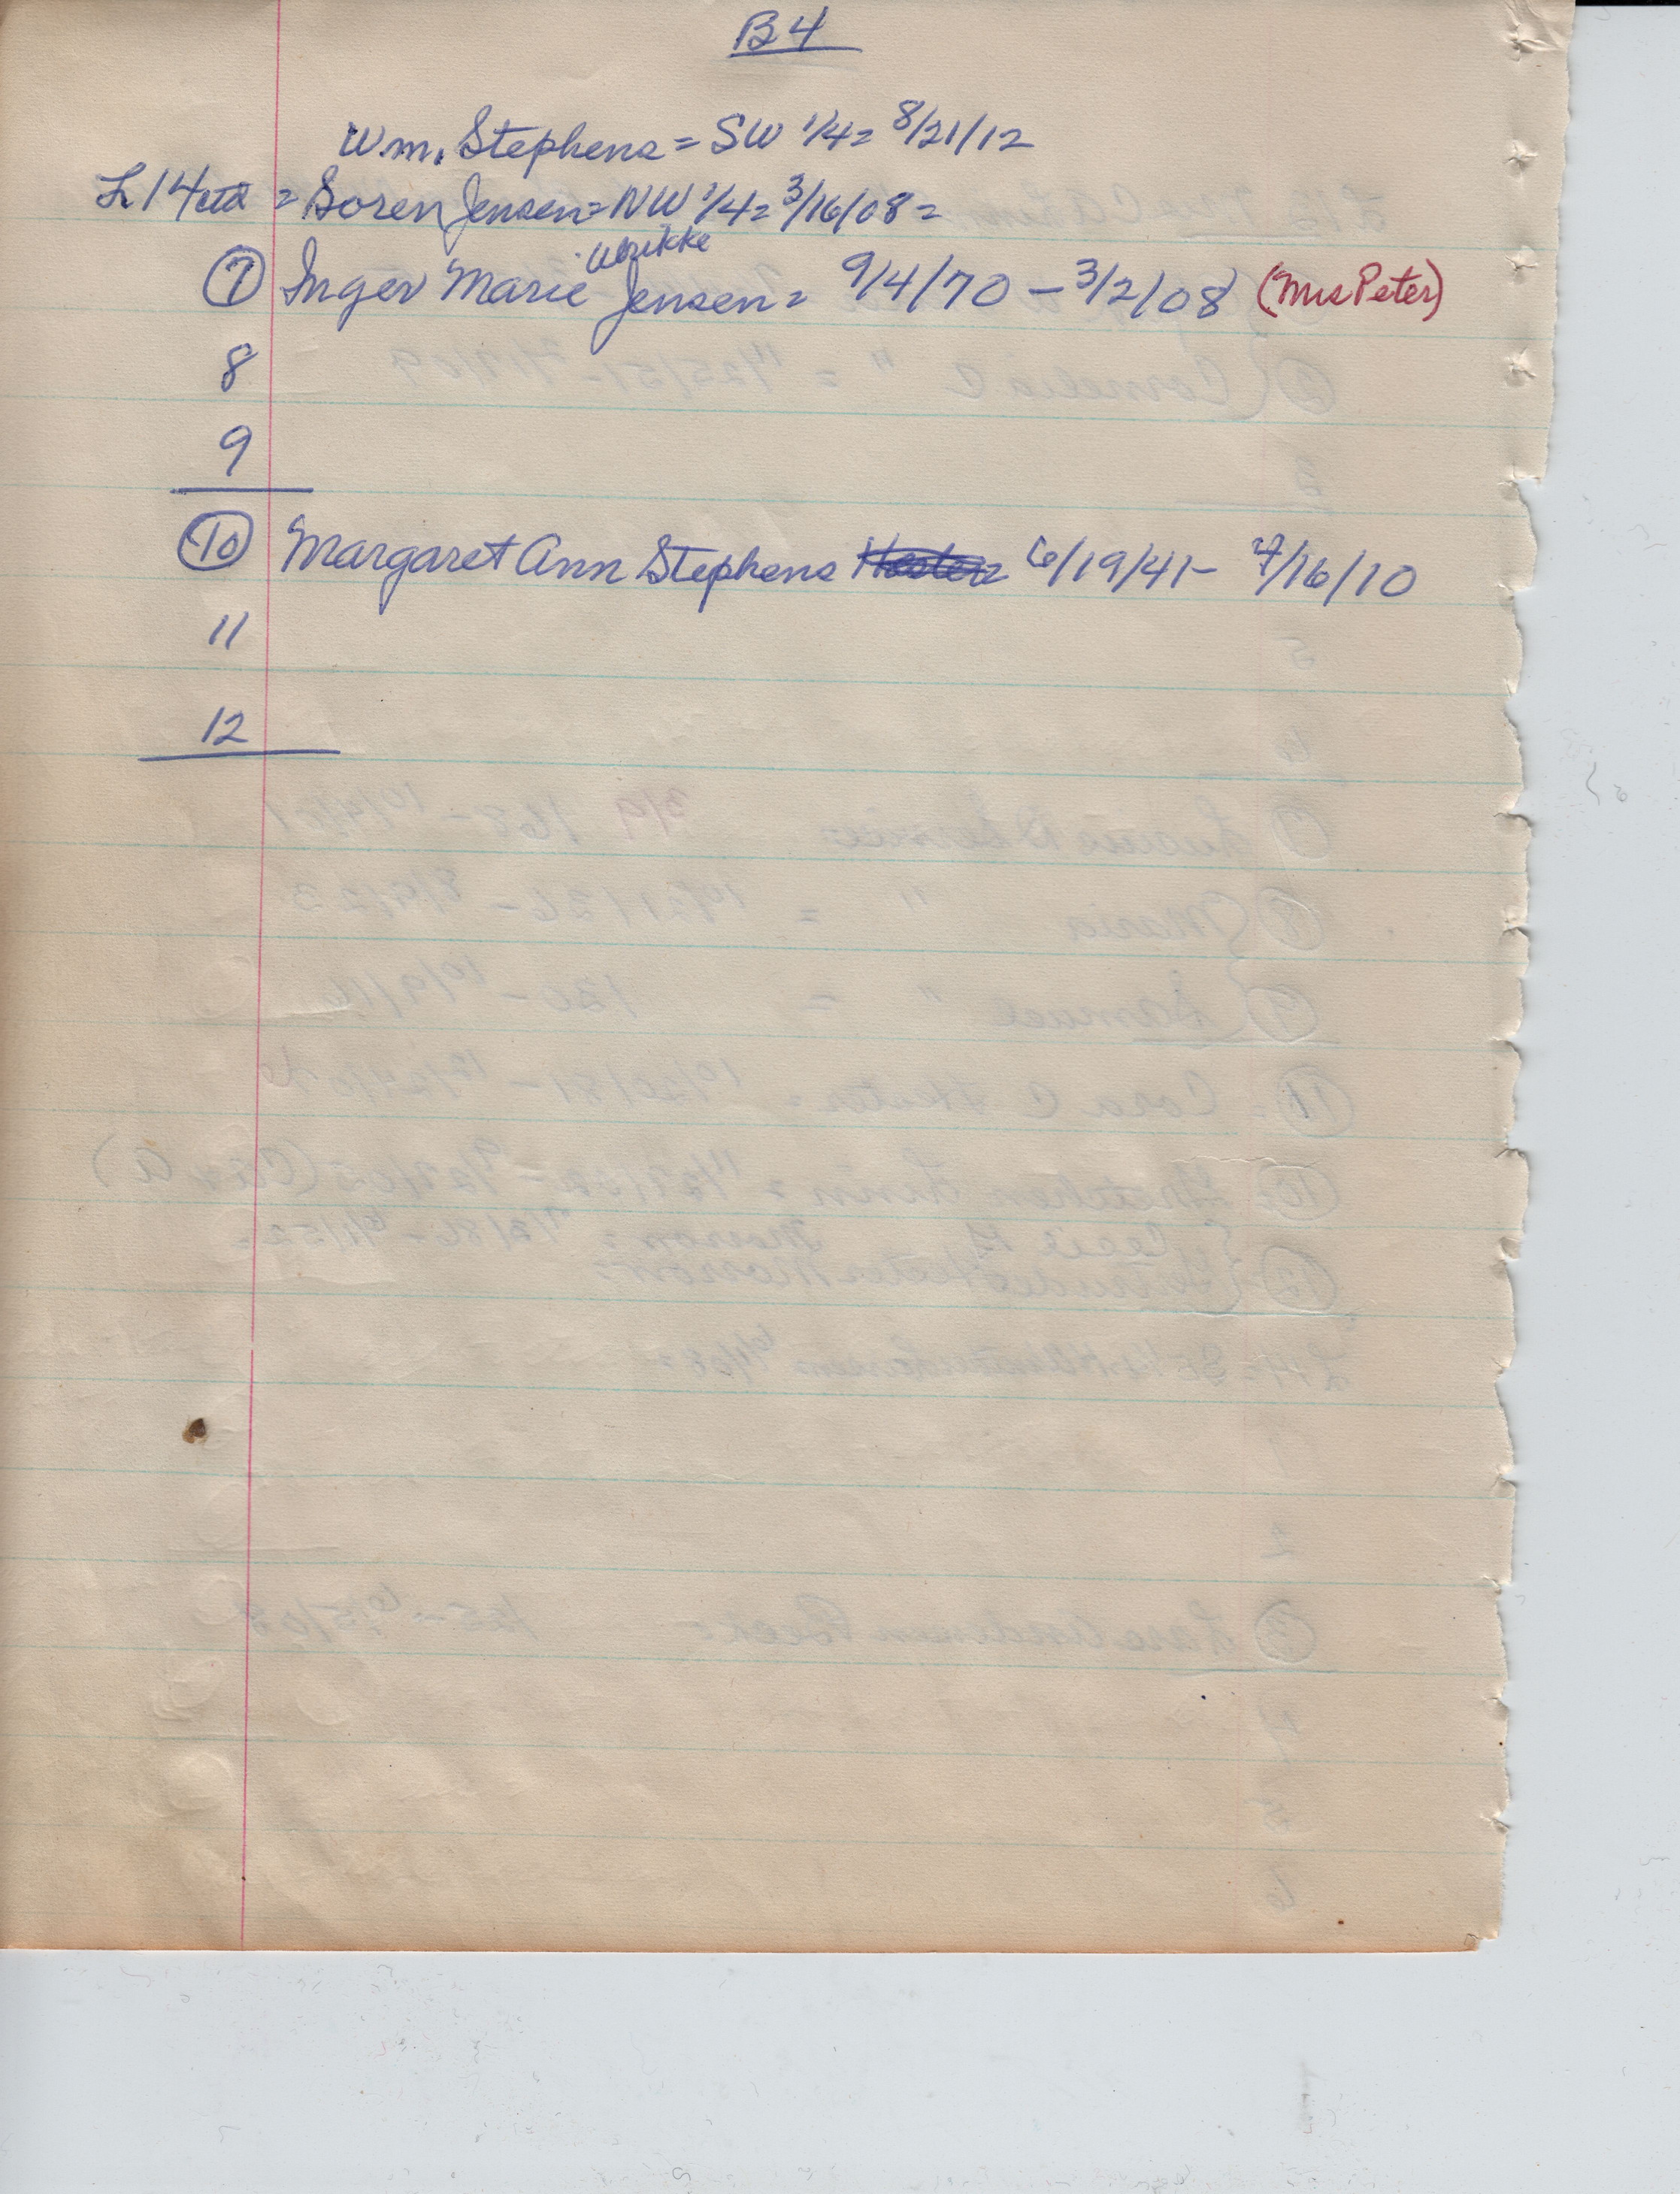 B4
Wm. Stephens = SW 1/4 = 8/21/12
L14ctd = Soren Jensen = NW 1/4 = 3/16/08 =
Ulrikke
7 Inger Marie Jensen = 9/4/70 – 3/2/08 (Mrs Peter)
8
9
10 Margaret Ann Stephens Hester 6/19/41 – 7/16/10
11
12